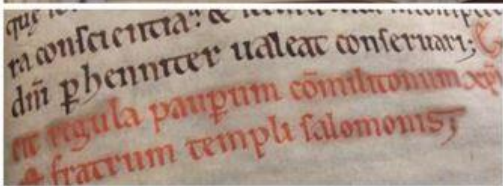 ra conscientia? &
dm̄ ꝑhenniter ualeat conseruari;
regula pauꝑum cōmilitonum xp̄i
& fratrum templi salomonis;